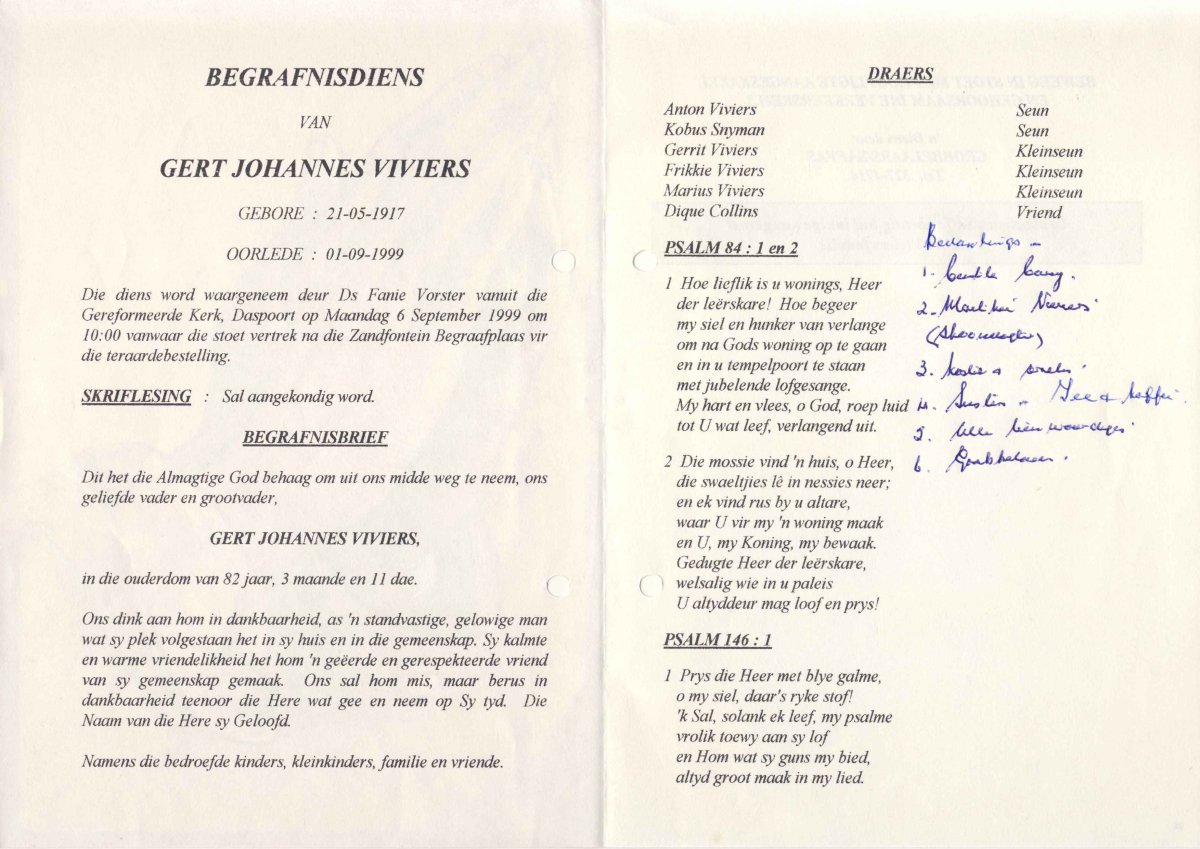 BEGRAFNISDIENS
VAN
GERT JOHANNES VIVIERS
GEBORE : 21-05-1917
OORLEDE : 01-09-1999
Die diens word waargeneem deur Ds Fanie Vorster vanuit die
Gereformeerde Kerk, Daspoort op Maandag 6 September 1999 om
10:00 vanwaar die stoet vertrek na die Zandfontein Begraafplaas vir
die teraardebestelling.
SKRIFLESING : Sal aangekondig word.
BEGRAFNISBRIEF
Dit het die Almagtige God behaag om uit ons midde weg te neem, ons
geliefde vader en grootvader,
GERT JOHANNES VIVIERS,
in die ouderdom van 82 jaar, 3 maande en 11 dae.
Ons dink aan hom in dankbaarheid, as 'n standvastige, gelowige man
wat sy plek volgestaan het in sy huis en in die gemeenskap. Sy kalmte
en warme vriendelikheid het hom 'n geëerde en gerespekteerde vriend
van sy gemeenskap gemaak. Ons sal hom mis, maar berus in
dankbaarheid teenoor die Here wat gee en neem op Sy tyd. Die
Naam van die Here sy Geloofd.
Namens die bedroefde kinders, kleinkinders, familie en vriende.
DRAERS
Anton Viviers Seun
Kobus Snyman Seun
Gerrit Viviers Kleinseun
Frikkie Viviers Kleinseun
Marius Viviers Kleinseun
Dique Collins Vriend
PSALM 84 : 1 en 2
1 Hoe lieflik is u wonings, Heer
der leërskare! Hoe begeer
my siel en hunker van verlange
om na Gods woning op te gaan
en in u tempelpoort te staan
met jubelende lofgesange.
My hart en vlees, o God, roep luid
tot U wat leef, verlangend uit.
2 Die mossie vind 'n huis, o Heer,
die swaeltjies lê in nessies neer;
en ek vind rus by u altare,
waar U vir my 'n woning maak
en U, my Koning, my bewaak.
Gedugte Heer der leërskare,
welsalig wie in u paleis
U altyddeur mag loof en prys!
PSALM 146 : 1
1 Prys die Heer met blye galme,
o my siel, daar's ryke stof!
'k Sal, solank ek leef, my psalme
vrolik toewy aan sy lof
en Hom wat sy guns my bied,
altyd groot maak in my lied.
Bedankings
1.
2.
(Skoondogter)
3.
4. Susters - Tee + koffie.
5. Alle teenwoordiges
6.